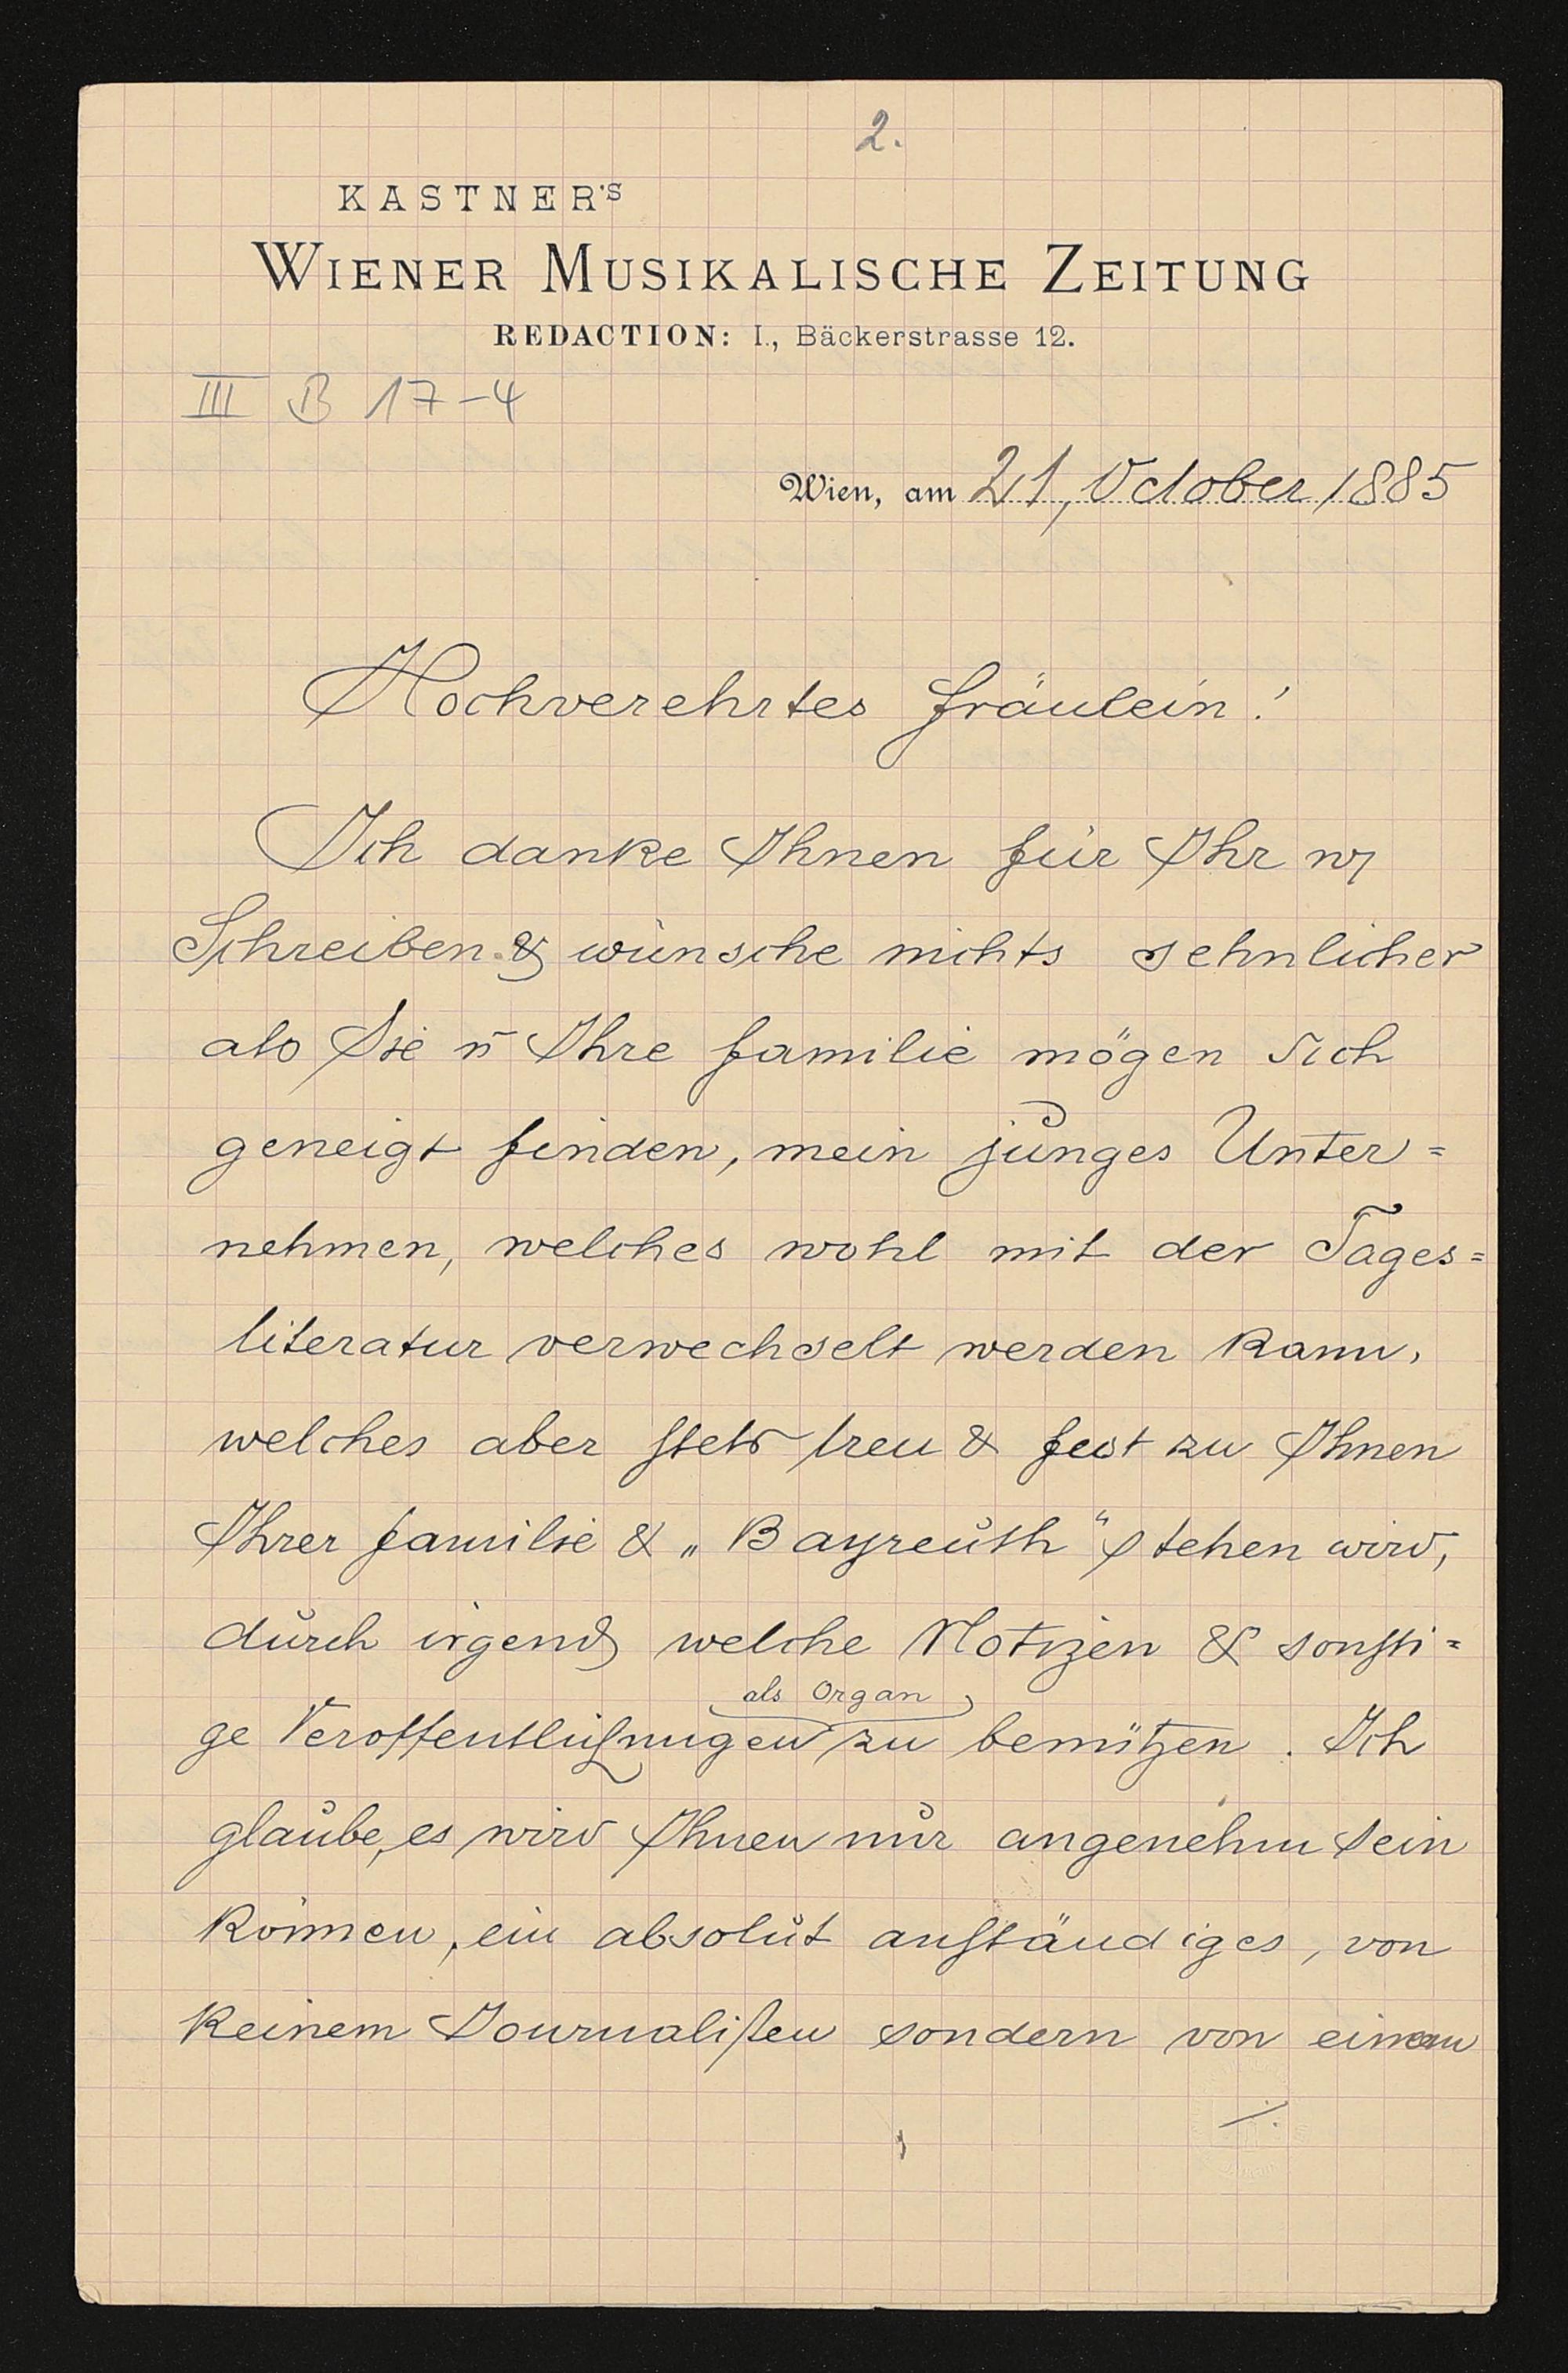 2.
KASTNER'S
WIENER MUSIKALISCHE ZEITUNG
REDACTION: I., Bäckerstrasse 12.
III B 17-4
Wien, am 21, October 1885
Hochverehrtes Fräulein!
Ich danke Ihnen für Ihr
Schreiben & wünsche nichts sehnlicher
als Sie u Ihre Familie mögen sich
geneigt finden, mein junges Unter=
nehmen, welches wohl mit der Tages=
literatur verwechselt werden kann,
welches aber stets treu & fest zu Ihnen
Ihrer Familie & „Bayreuth“ stehen wird,
durch irgend welche Notizen & sonsti=
als Organ
ge Veröffentlichungen zu benützen. Ich
glaube, es wird Ihnen nur angenehm sein
können, ein absolut anständiges, von
keinem Journalisten sondern von einem
./.